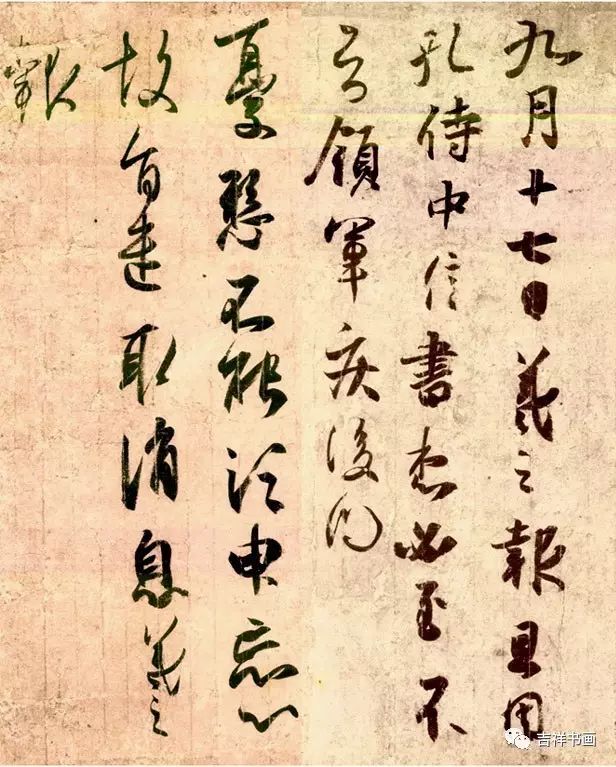 九月十七日羲之報且因
孔侍中信書想必至不
知領軍疾後問
憂懸不能須臾忘心
故旨遣取消息羲之
報
吉祥书画